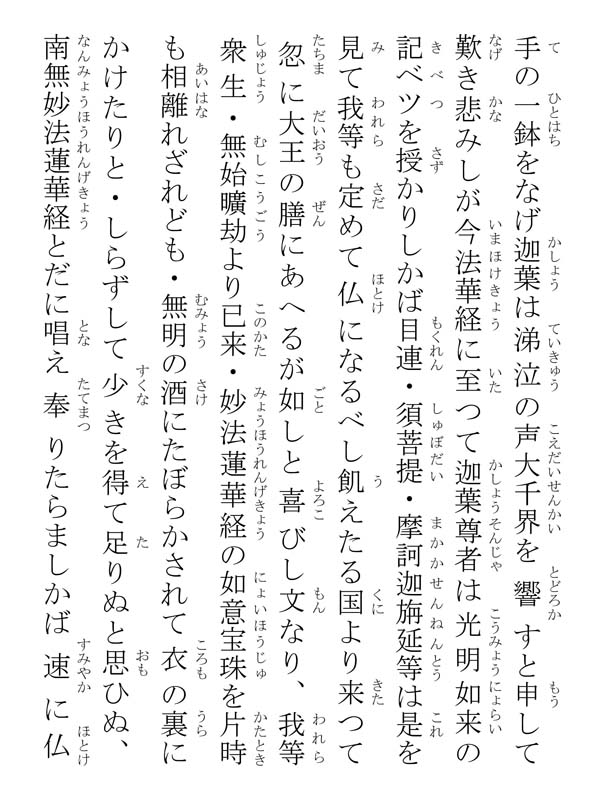 手の一鉢をなげ迦葉は涕泣の声大千界を響すと申して
歎き悲みしが今法華経に至つて迦葉尊者は光明如来の
記べツを授かりしかば目連・須菩提・摩訶迦旃延等は是を
見て我等も定めて仏になるべし飢えたる国より来つて
忽に大王の膳にあへるが如しと喜びし文なり、我等
衆生・無始曠劫より已来・妙法蓮華経の如意宝珠を片時
も相離れざれども・無明の酒にたぼらかされて衣の裏に
かけたりと・しらずして少きを得て足りぬと思ひぬ、
南無妙法蓮華経とだに唱え奉りたらましかば速に仏